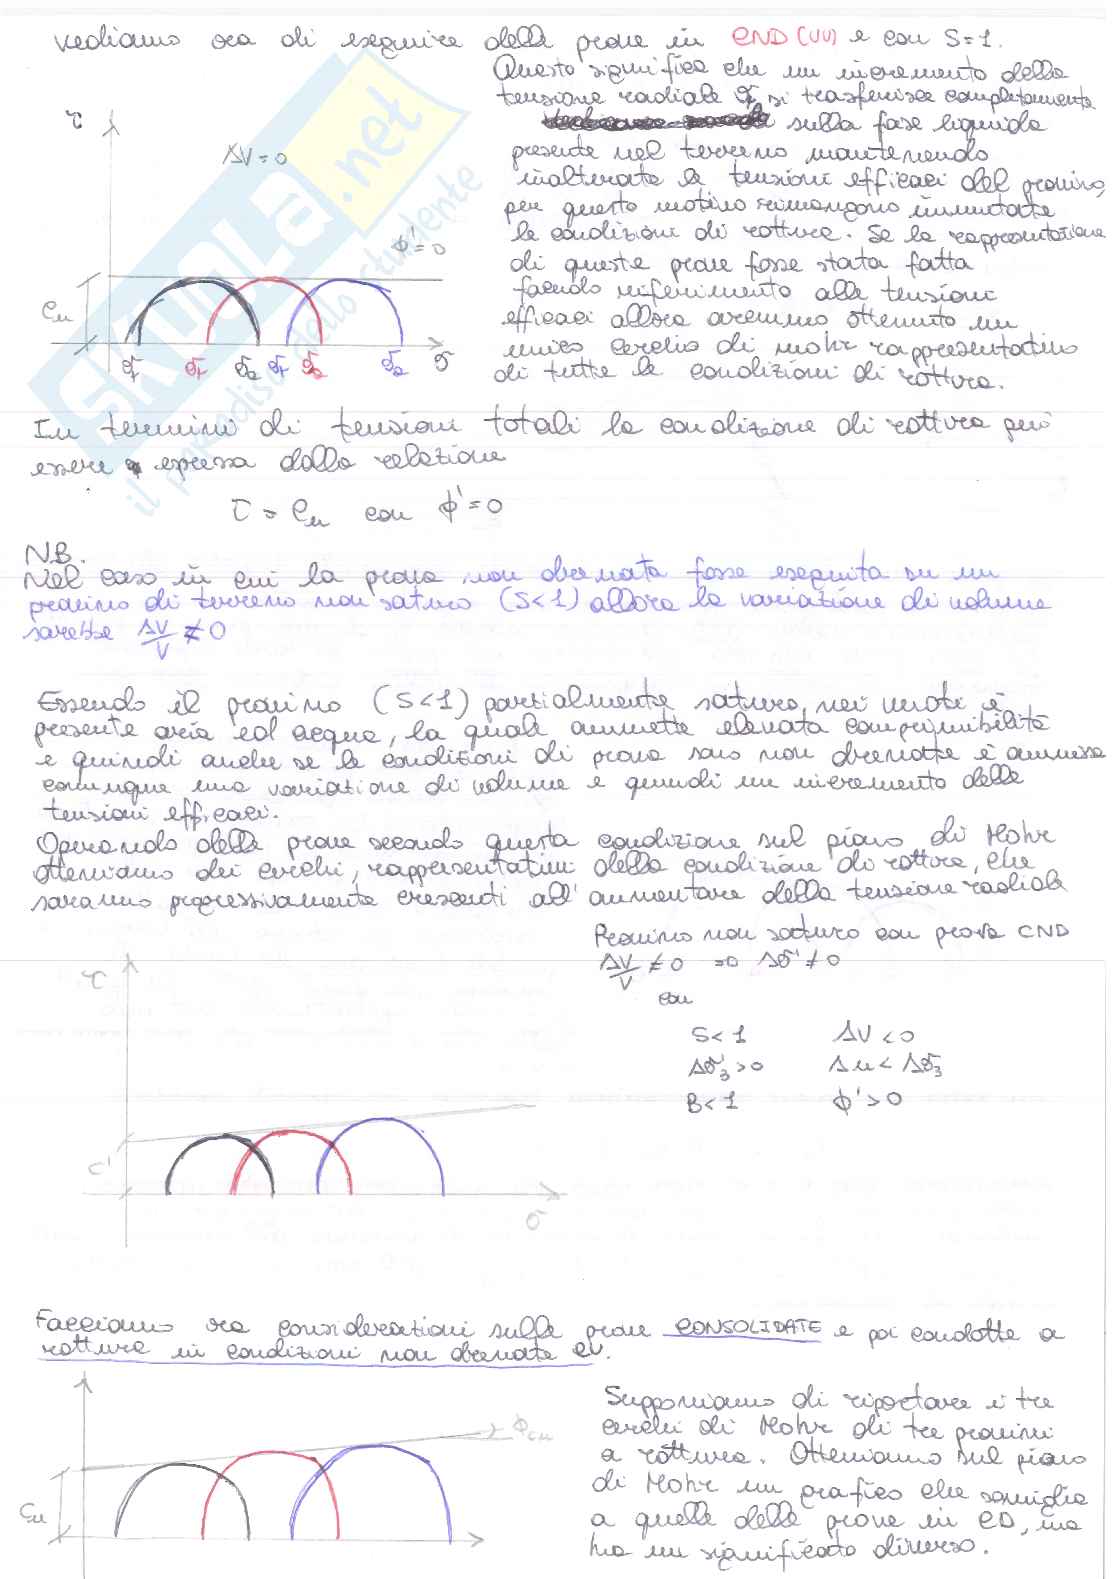 vediamo ora di eseguire delle prove in CND (UU) e con S=1.
Questo significa che un incremento della
tensione radiale σr si trasferisce completamente
sulla fase liquida
presente nel terreno mantenendo
inalterate le tensioni efficaci del provino,
per questo motivo rimangono immutate
le condizioni di rottura. Se la rappresentazione
di queste prove fosse stata fatta
facendo riferimento alle tensioni
efficaci allora avremmo ottenuto un
unico cerchio di mohr rappresentativo
di tutte le condizioni di rottura.
τ
ΔV=0
ϕ'=0
Cu
σr σr σa σr σa σa σ
SKUOLA.net
il paradiso dello studente
In termini di tensioni totali la condizione di rottura può
essere espressa dalla relazione
τ = Cu con ϕ'=0
NB.
Nel caso in cui la prova non drenata fosse eseguita su un
provino di terreno non saturo (S<1) allora la variazione di volume
sarebbe ΔV/V ≠ 0
Essendo il provino (S<1) parzialmente saturo, nei vuoti è
presente aria ed acqua, la quale ammette elevata comprimibilità
e quindi anche se le condizioni di prova sono non drenate è ammessa
comunque una variazione di volume e quindi un incremento delle
tensioni efficaci.
Operando delle prove secondo questa condizione sul piano di Mohr
otteniamo dei cerchi, rappresentativi della condizione di rottura, che
saranno progressivamente crescenti all'aumentare della tensione radiale
Provino non saturo con prova CND
ΔV/V ≠ 0 => Δσ' ≠ 0
con
S<1 ΔV<0
Δσ'3>0 Δu<Δσ3
B<1 ϕ'>0
τ
C'
σ
Facciamo ora considerazioni sulle prove CONSOLIDATE e poi condotte a
rottura in condizioni non drenate CU.
Supponiamo di riportare i tre
cerchi di Mohr di tre provini
a rottura. Otteniamo sul piano
di Mohr un grafico che somiglia
a quello delle prove in CD, ma
ha un significato diverso.
ϕcu
Cu